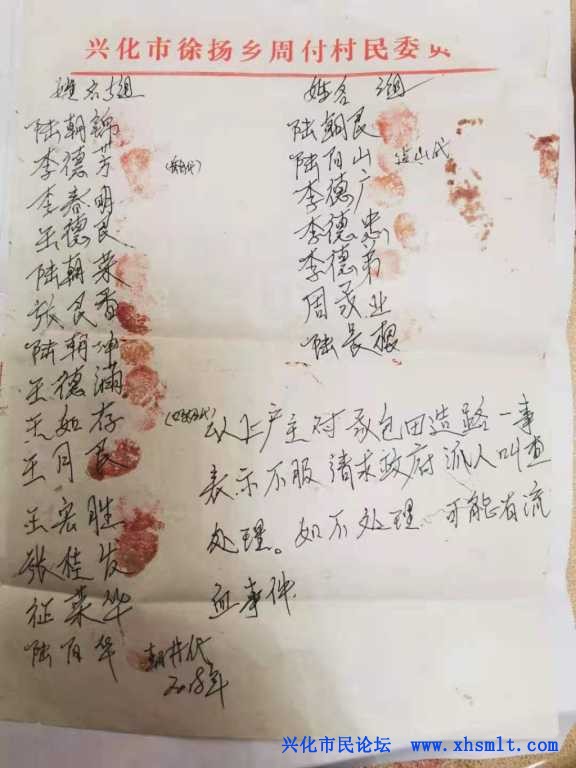 兴化市徐扬乡周付村民委员
姓名 5组
陆朝锦
李德芳
李春明
王德良
陆朝荣
张民香
陆朝坤
王德满
王如存
王月民
王宏胜
张桂发
征荣华
陆百华
2018年
姓名 组
陆朝民
陆百山
李德广
李德忠
李德弟
周义业
陆长根
以上户主对承包田造路一事
表示不服请求政府派人叫查
处理。如不处理 可能有流
血事件
兴化市民论坛 www.xhsmlt.com